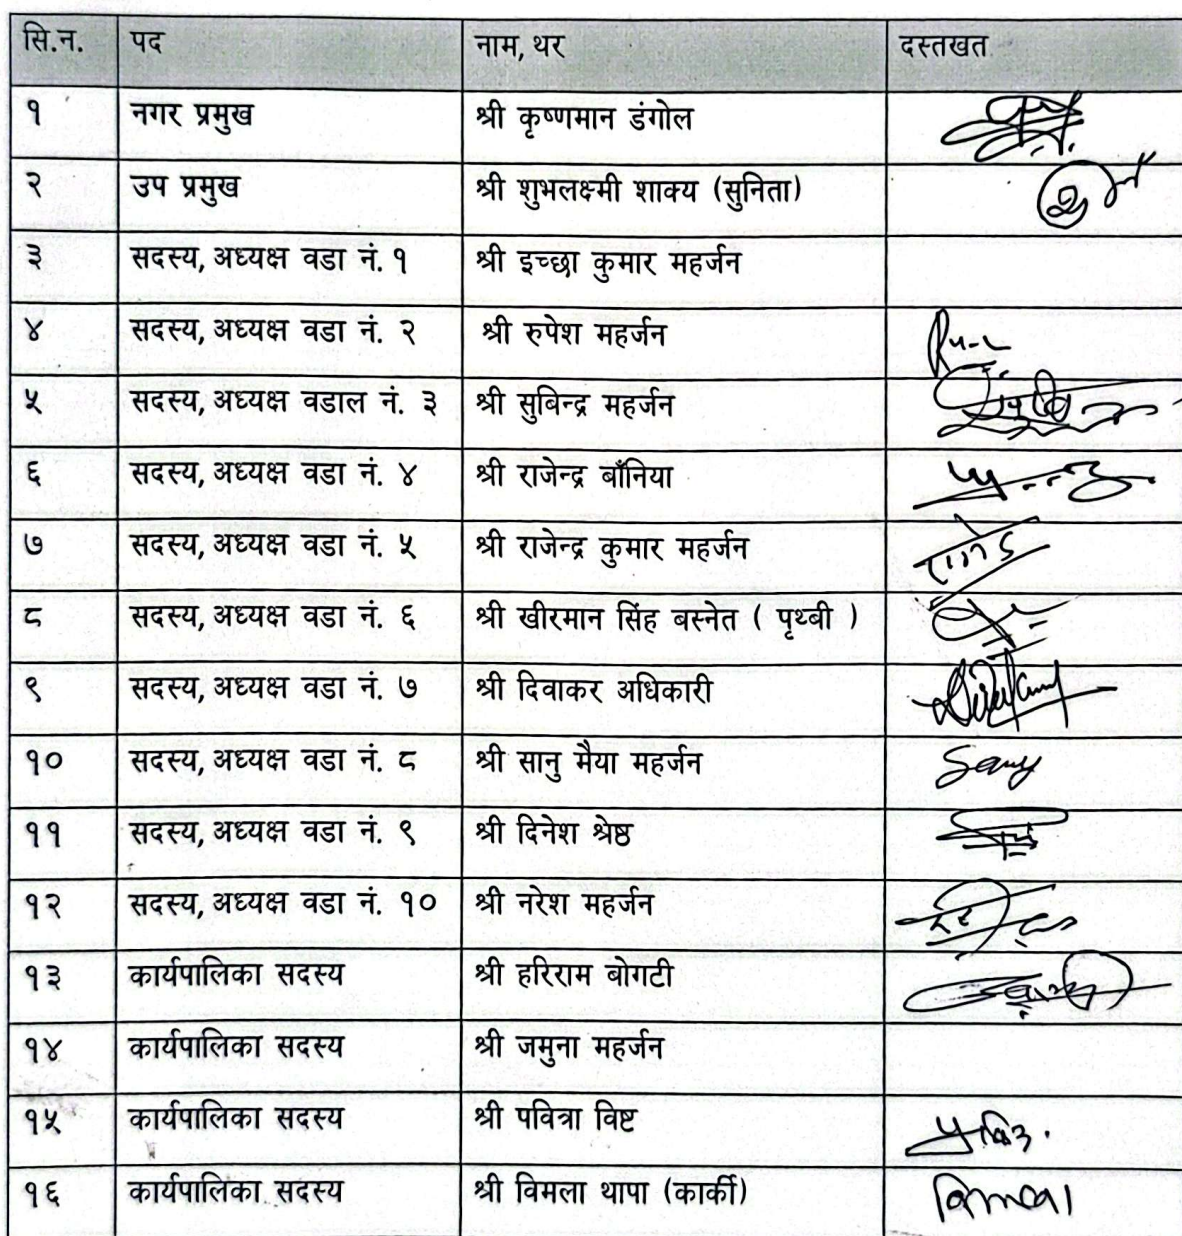 सि.न. पद नाम, थर दस्तखत
१ नगर प्रमुख श्री कृष्णमान डंगोल
२ उप प्रमुख श्री शुभलक्ष्मी शाक्य (सुनिता)
३ सदस्य, अध्यक्ष वडा नं. १ श्री इच्छा कुमार महर्जन
४ सदस्य, अध्यक्ष वडा नं. २ श्री रुपेश महर्जन
५ सदस्य, अध्यक्ष वडाल नं. ३ श्री सुबिन्द्र महर्जन
६ सदस्य, अध्यक्ष वडा नं. ४ श्री राजेन्द्र बाँनिया
७ सदस्य, अध्यक्ष वडा नं. ५ श्री राजेन्द्र कुमार महर्जन
८ सदस्य, अध्यक्ष वडा नं. ६ श्री खीरमान सिंह बस्नेत ( पृथ्बी )
९ सदस्य, अध्यक्ष वडा नं. ७ श्री दिवाकर अधिकारी
१० सदस्य, अध्यक्ष वडा नं. ८ श्री सानु मैया महर्जन
११ सदस्य, अध्यक्ष वडा नं. ९ श्री दिनेश श्रेष्ठ
१२ सदस्य, अध्यक्ष वडा नं. १० श्री नरेश महर्जन
१३ कार्यपालिका सदस्य श्री हरिराम बोगटी
१४ कार्यपालिका सदस्य श्री जमुना महर्जन
१५ कार्यपालिका सदस्य श्री पवित्रा विष्ट
१६ कार्यपालिका सदस्य श्री विमला थापा (कार्की) विमला